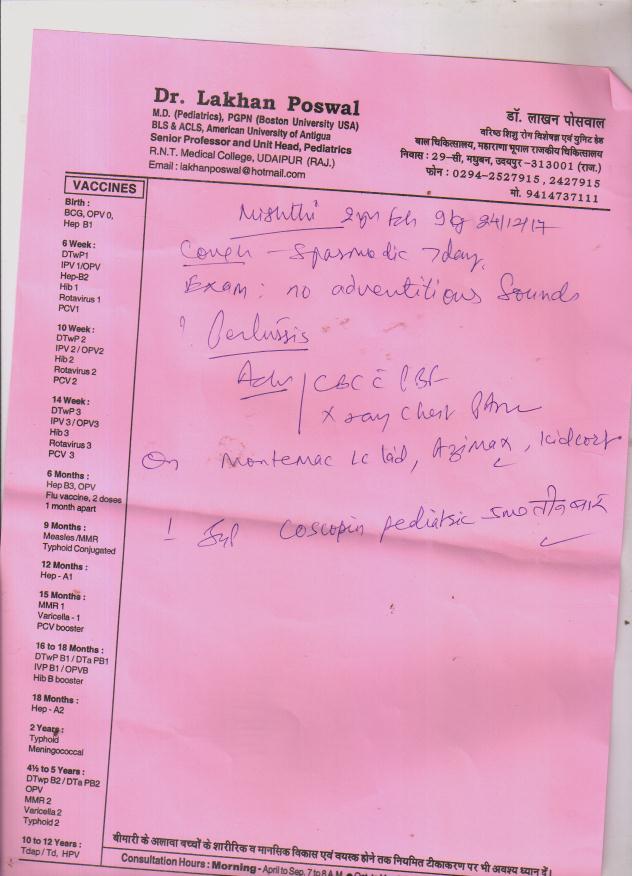 Dr. Lakhan Poswal
M.D. (Pediatrics), PGPN (Boston University USA)
BLS & ACLS, American University of Antigua
Senior Professor and Unit Head, Pediatrics
R.N.T. Medical College, UDAIPUR (RAJ.)
Email : lakhanposwal@hotmail.com
डॉ. लाखन पोसवाल
वरिष्ठ शिशु रोग विशेषज्ञ एवं युनिट हेड
बाल चिकित्सालय, महाराणा भूपाल राजकीय चिकित्सालय
निवास : 29-सी, मधुबन, उदयपुर-313001 (राज.)
फोन : 0294-2527915, 2427915
मो. 9414737111
VACCINES
Birth :
BCG, OPV 0,
Hep B1
6 Week :
DTwP1
IPV 1/OPV
Hep-B2
Hib 1
Rotavirus 1
PCV1
10 Week :
DTwP 2
IPV 2 / OPV2
Hib 2
Rotavirus 2
PCV 2
14 Week :
DTwP 3
IPV 3 / OPV3
Hib 3
Rotavirus 3
PCV 3
6 Months :
Hep B3, OPV
Flu vaccine, 2 doses
1 month apart
9 Months :
Measles /MMR
Typhoid Conjugated
12 Months :
Hep - A1
15 Months :
MMR 1
Varicella - 1
PCV booster
16 to 18 Months :
DTwP B1 / DTa PB1
IVP B1 / OPVB
Hib B booster
18 Months :
Hep - A2
2 Years :
Typhoid
Meningococcal
4½ to 5 Years :
DTwp B2 / DTa PB2
OPV
MMR 2
Varicella 2
Typhoid 2
10 to 12 Years :
Tdap / Td, HPV
Mishthi 9 kg 24/12/17
Cough - Spasmodic 7 day
Exam : no adventitious Sounds
? Pertussis
Adv CBC c PBF
X ray Chest
On Montemac Lc , Azimax, Kidcort
Syp Coscopin pediatric 5ml तीन बार
बीमारी के अलावा बच्चों के शारीरिक व मानसिक विकास एवं वयस्क होने तक नियमित टीकाकरण पर भी अवश्य ध्यान दें।
Consultation Hours : Morning - April to Sep. 7 to 8 A.M.